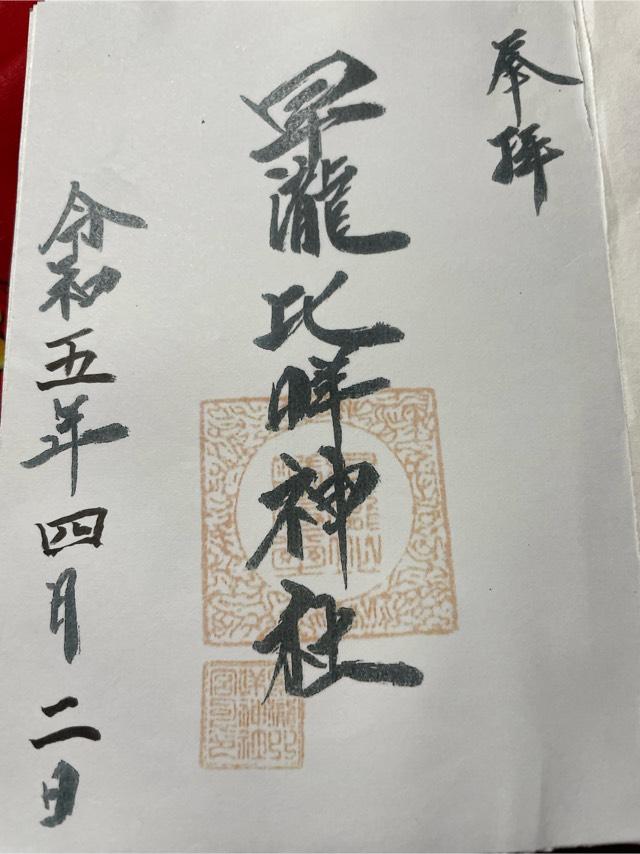 奉拝
早瀧比咩神社
令和五年四月二日